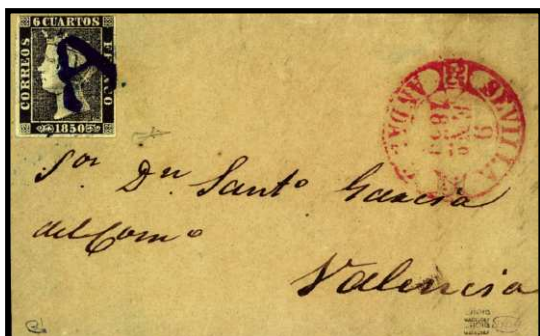 6 CUARTOS
CORREOS
FRANCO
1850
A
SEVILLA
9
ENE
1850
Sor Dn Santo Garcia
del Como
Valencia